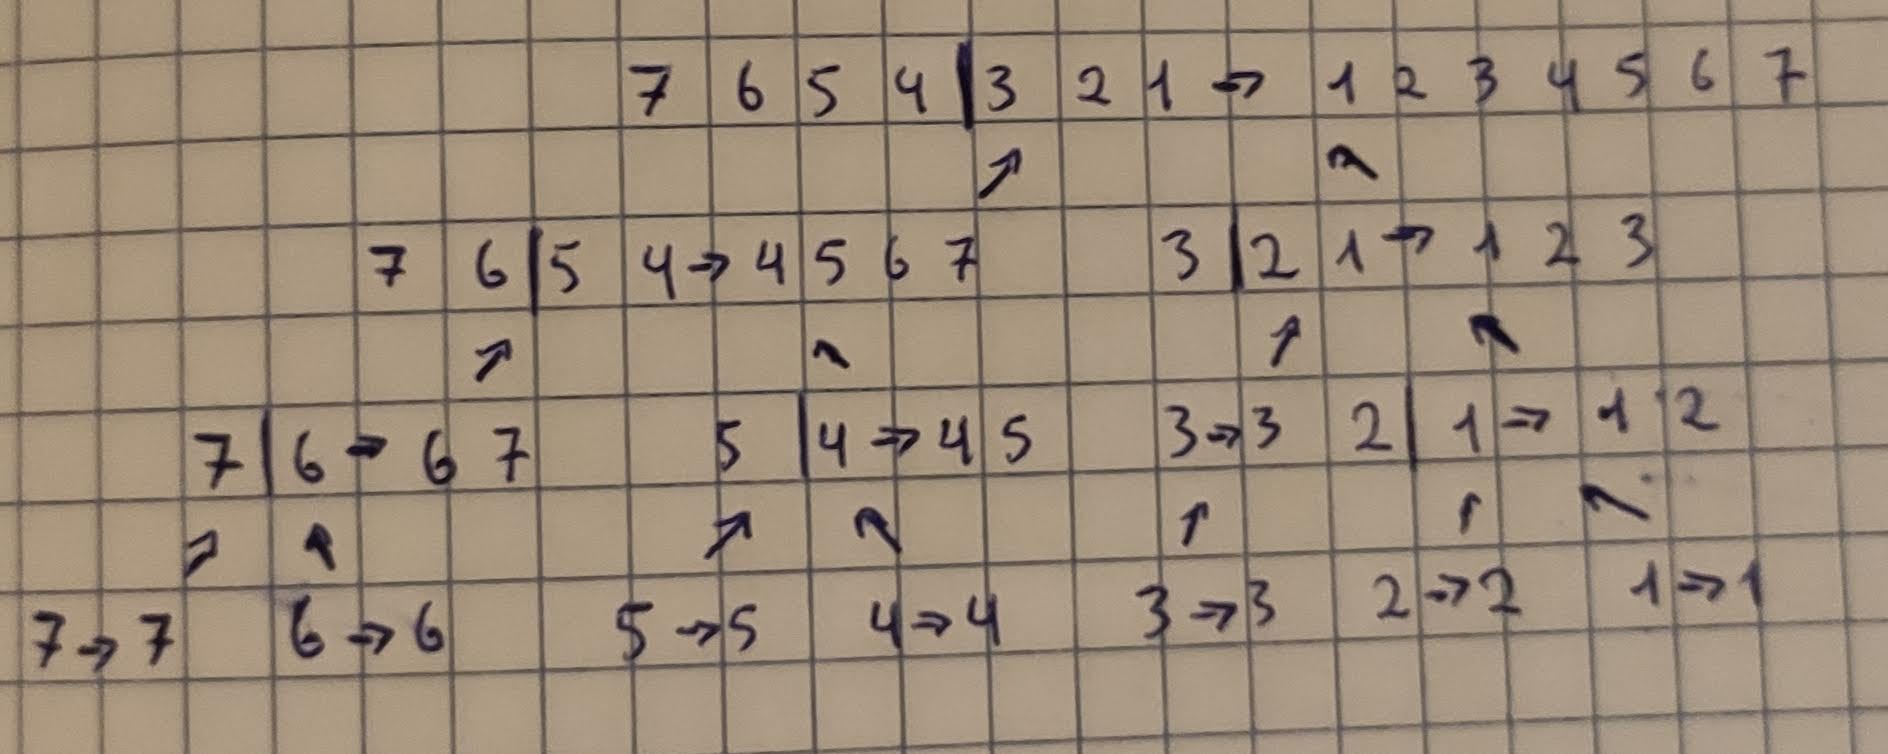 7 6 5 4 | 3 2 1 → 1 2 3 4 5 6 7
↗ ↖
7 6 | 5 4 → 4 5 6 7 3 | 2 1 → 1 2 3
↗ ↖ ↗ ↖
7 | 6 → 6 7 5 | 4 → 4 5 3 → 3 2 | 1 → 1 2
↗ ↑ ↗ ↖ ↑ ↑ ↖
7 → 7 6 → 6 5 → 5 4 → 4 3 → 3 2 → 2 1 → 1